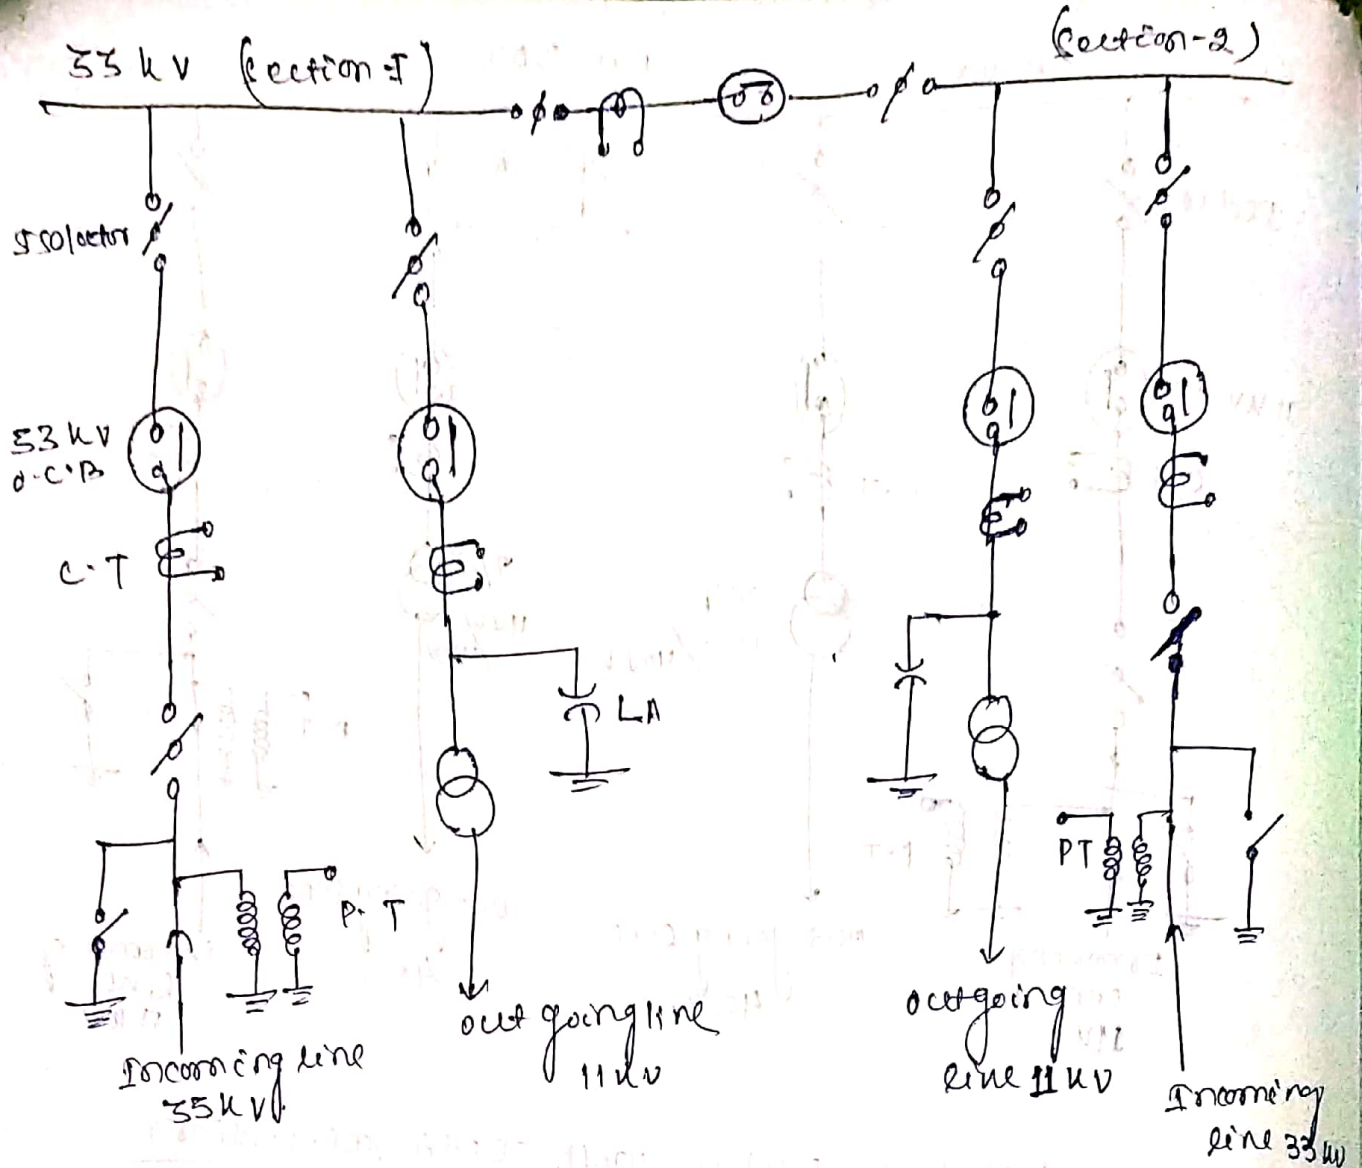 33 kV (Section-I)
(Section-2)
Isoloctor
33 kV
O.C.B
C.T
LA
P.T
PT
Incoming line
33kV
out going line
11kV
outgoing
line 11 kV
Incoming
line 33 kV